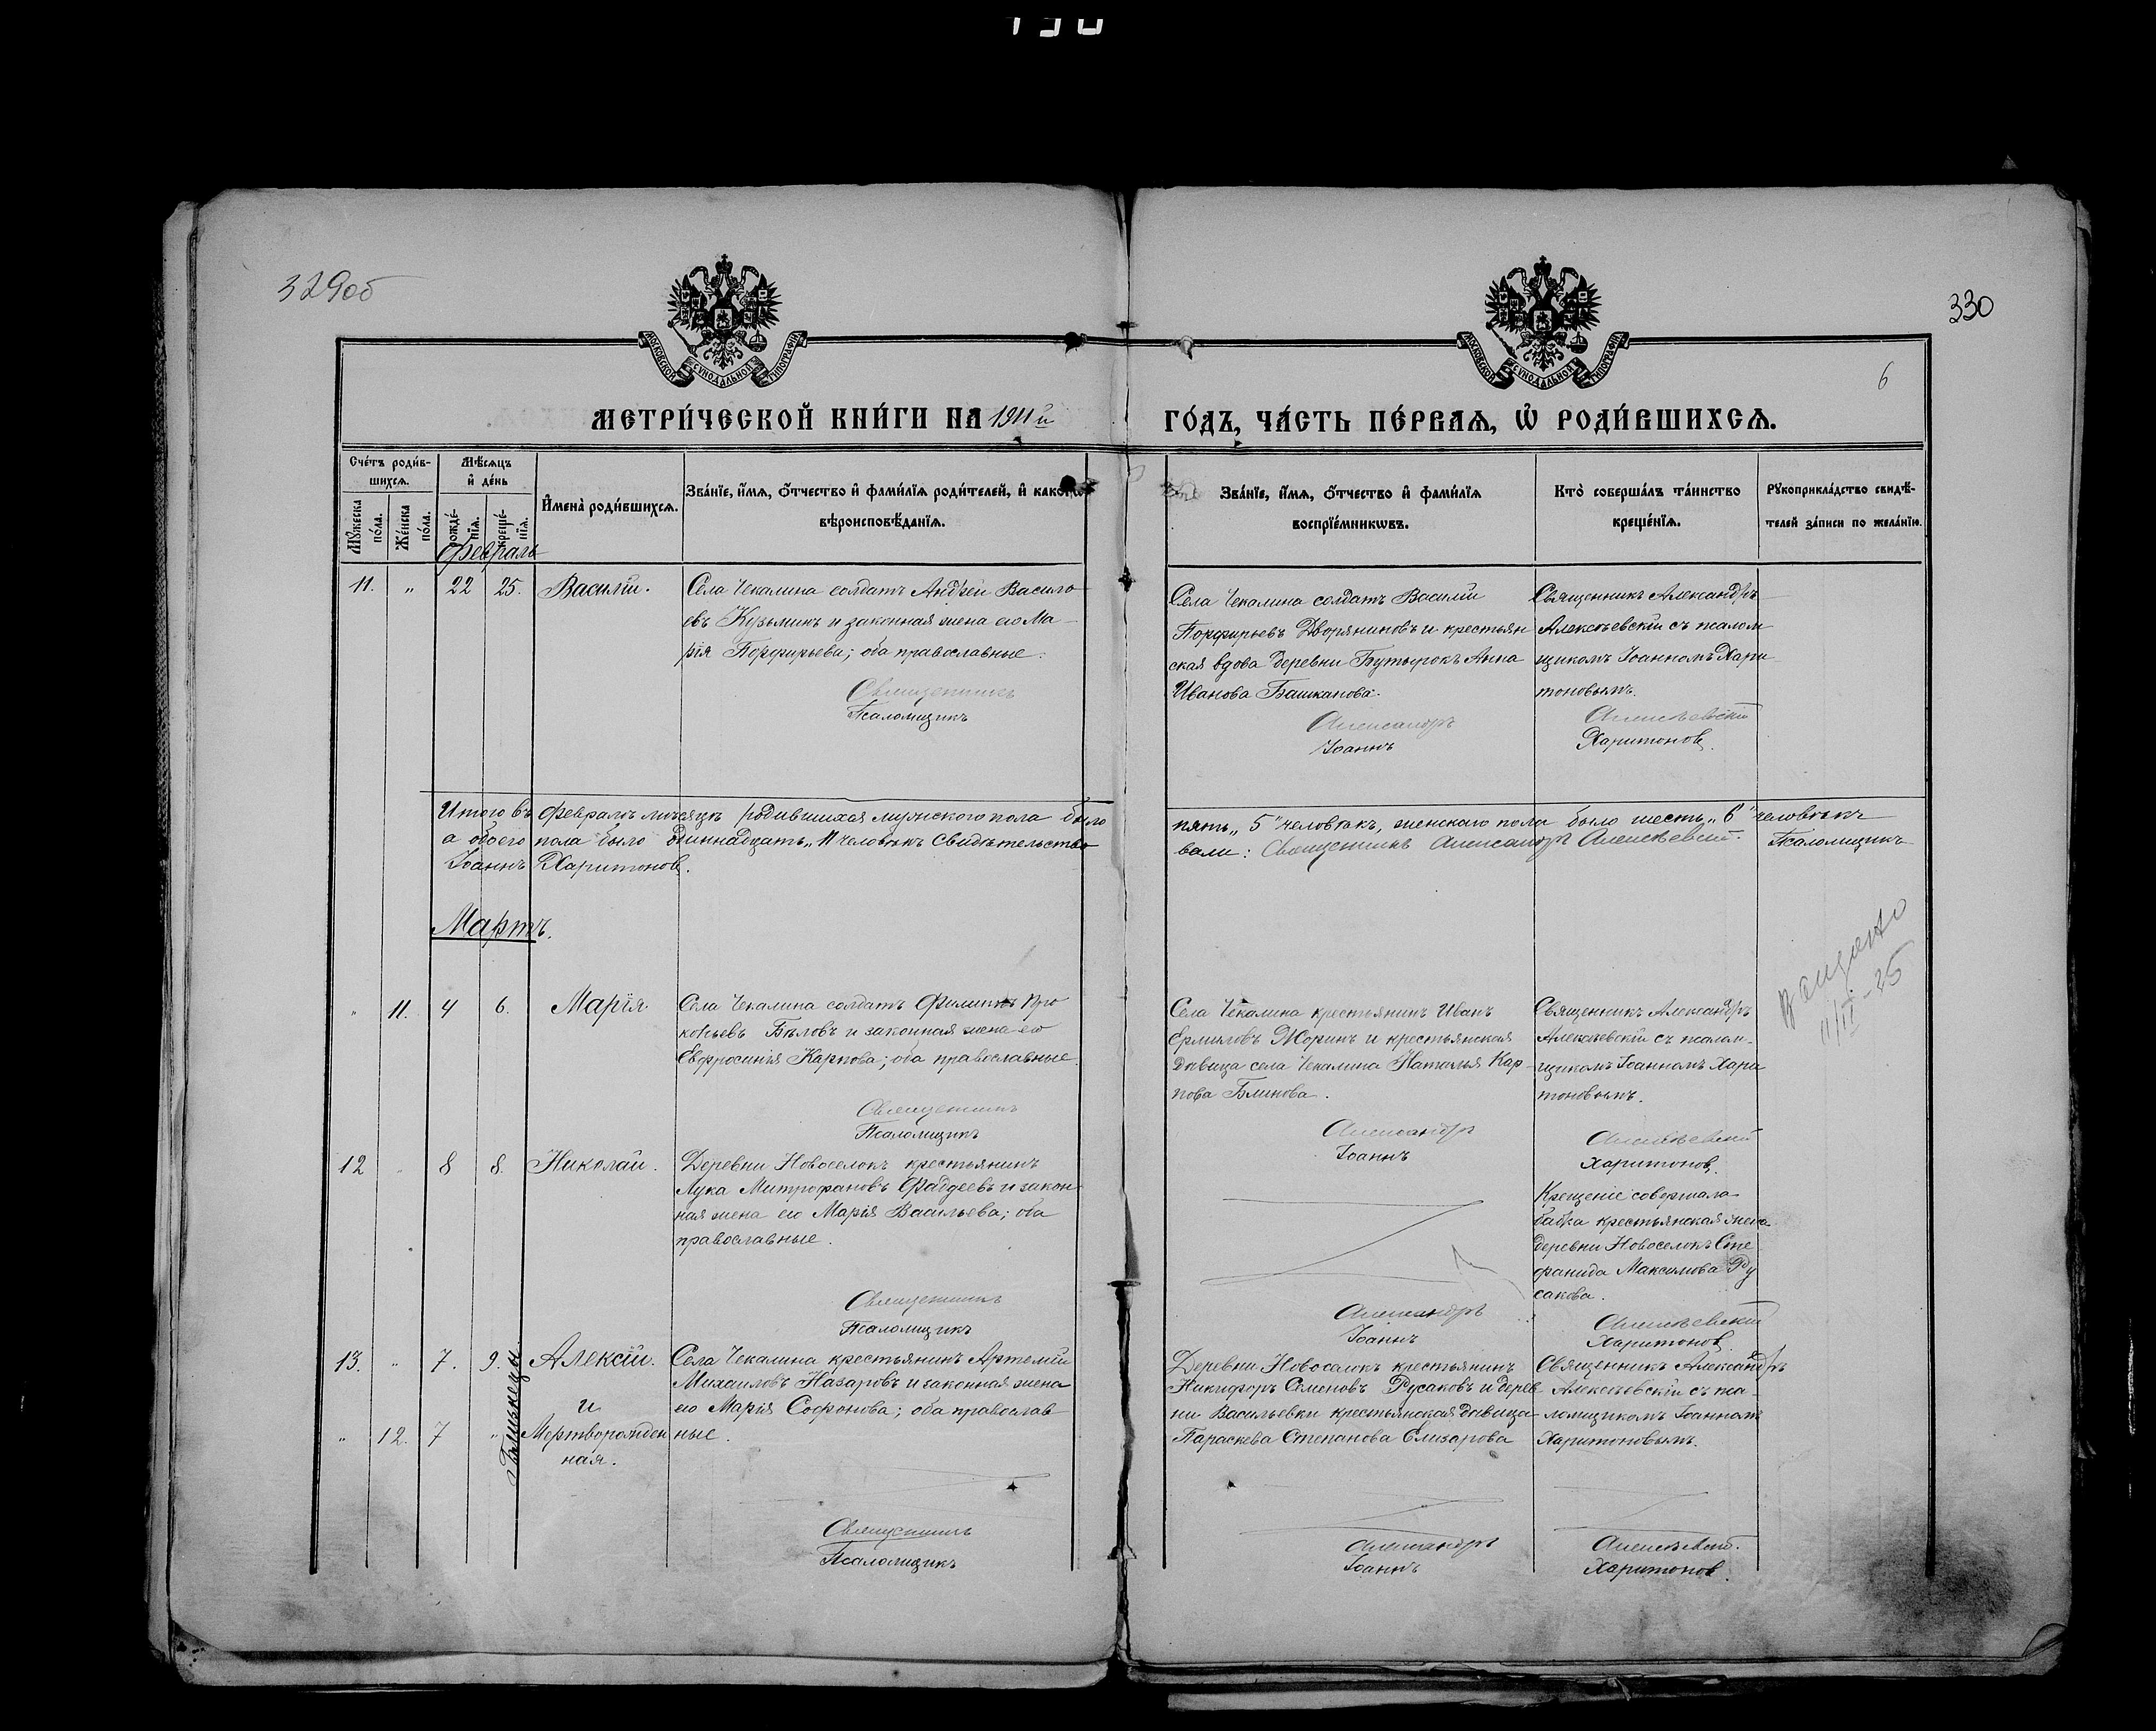 329об
330
6
МОСКОВСКОЙ СѴНОДАЛЬНОЙ ТИПОГРАФІИ
МОСКОВСКОЙ СѴНОДАЛЬНОЙ ТИПОГРАФІИ
МЕТРИ́ЧЕСКОЙ КНИ́ГИ НА 1911й ГО́ДЪ, ЧА́СТЬ ПЕ́РВАѦ, Ѡ҆ РОДИ́ВШИХСѦ.
Сче́тъ роди́в-
шихсѧ.
Мꙋ́жеска по́ла.
Же́нска по́ла.
Мѣ́сѧцъ
и҆ де́нь
рожде́-
нїѧ.
креще́-
нїѧ.
И҆мена̀ роди́вшихсѧ.
Зва́нїе, и҆́мѧ, о҆́тчество и҆ фами́лїѧ роди́телей, и҆ како́гѡ
вѣроисповѣ́данїѧ.
Зва́нїе, и҆́мѧ, о҆́тчество и҆ фами́лїѧ
воспрїе́мникѡвъ.
Кто̀ соверша́лъ та́инство
креще́нїѧ.
Рꙋкоприкла́дство свидѣ́-
телей за́писи по жела́нїю.
Февраль
11. „ 22 25. Василій.
Села Чекалина солдатъ Андрей Василь
евъ Кузьминъ и законная жена его Ма-
рія Порфирьева; оба православные.
Священникъ
Псаломщикъ
Села Чекалина солдатъ Василій
Порфирьевъ Дворяниновъ и крестьян
ская вдова деревни Бутырокъ Анна
Иванова Башканова.
Александръ
Іоаннъ
Священникъ Александръ
Алексѣевскій съ псалом
щикомъ Іоанномъ Хари
тоновымъ.
Алексѣевскій
Харитоновъ.
Итого въ Февралѣ мѣсяцѣ родившихся мужского пола было пять „5" человѣкъ, женскаго пола было шесть „6" человѣкъ
а обоего пола было одиннадцать „11 человѣкъ Свидѣтельство вали: Священникъ Александръ Алексѣевскій. Псаломщикъ
Іоаннъ Харитоновъ.
Мартъ.
„ 11. 4 6. Марія
Села Чекалина солдатъ Филиппъ Про
копьевъ Бѣловъ и законная жена его
Евфросинія Карпова; оба православные.
Священникъ
Псаломщикъ
Села Чекалина крестьянинъ Иванъ
Ермиловъ Моринъ и крестьянская
дѣвица села Чекалина Наталья Кар-
пова Блинова.
Александръ
Іоаннъ
Священникъ Александръ
Алексѣевскій съ псалом-
щикомъ Іоанномъ Хари
тоновымъ.
Алексѣевскій
Харитоновъ.
12 „ 8 8. Николай.
Деревни Новоселокъ крестьянинъ
Лука Митрофановъ Фаддеевъ и закон
ная жена его Марія Васильева; оба
православные.
Священникъ
Псаломщикъ
Александръ
Іоаннъ
Крещеніе совершала
бабка крестьянская жена
деревни Новоселокъ Сте
фанида Максимова Ру
сакова.
Алексѣевскій
Харитоновъ.
13. „ 7. 9. Алексій.
и
„ 12. 7 „ Мертворожден
ная.
Близнецы
Села Чекалина крестьянинъ Артемій
Михаиловъ Назаровъ и законная жена
его Марія Софонова; оба православ
ные.
Священникъ
Псаломщикъ
Деревни Новоселокъ крестьянинъ
Никифоръ Семеновъ Русаковъ и дерев
ни Васильевки крестьянская дѣвица
Параскева Степанова Елизарова
Александръ
Іоаннъ
Священникъ Александръ
Алексѣевскій съ пса-
ломщикомъ Іоанномъ
Харитоновымъ.
Алексѣевскій.
Харитоновъ.